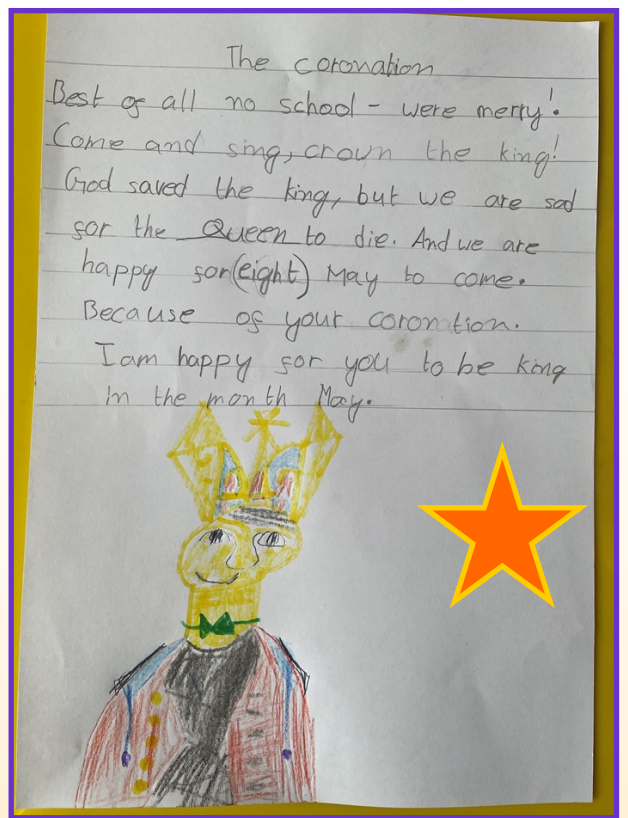 The coronation
Best of all no school - were merry!
Come and sing, crown the king!
God saved the king, but we are sad
for the Queen to die. And we are
happy for (eight) May to come.
Because of your coronation.
I am happy for you to be king
in the month May.